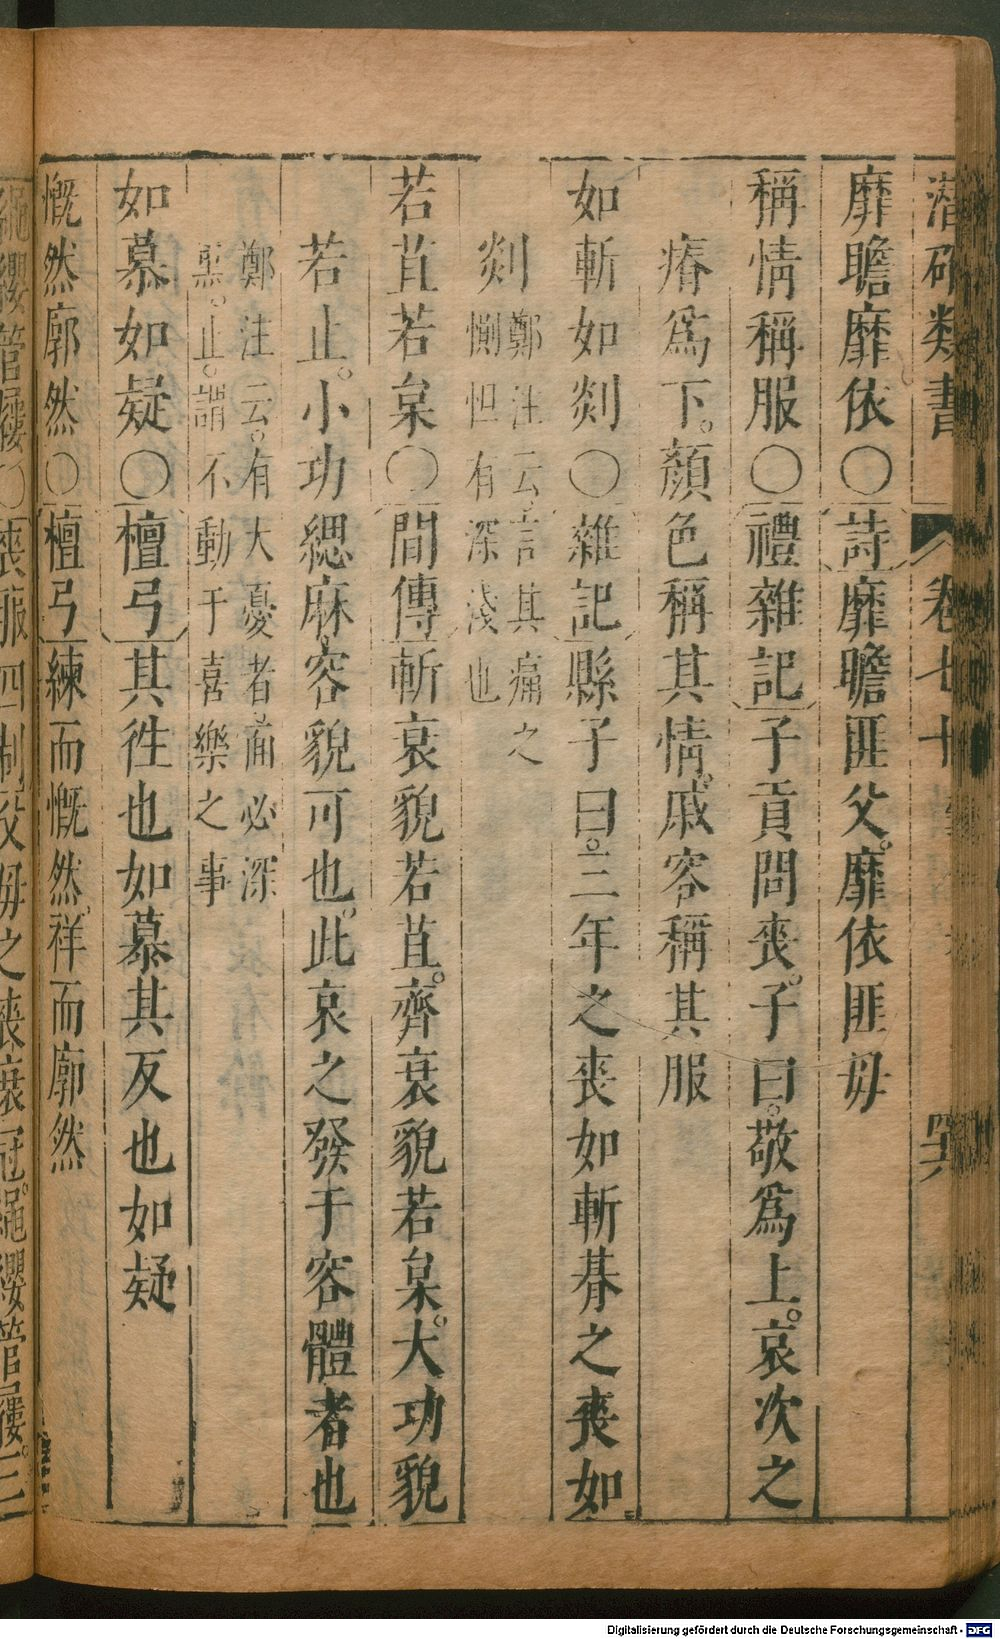 潛確類書 卷七十 四六
靡瞻靡依〇詩靡瞻匪父。靡依匪毋
稱情稱服〇禮雜記子貢問喪。子曰。敬爲上。哀次之
瘠爲下。顏色稱其情。戚容稱其服
如斬如剡〇雜記縣子曰。三年之喪如斬朞之喪如
剡鄭注云。言其痛之
惻怛有深淺也
若苴若枲〇間傳斬衰貌若苴。齊衰貌若枲。大功貌
若止。小功緦麻容貌可也。此哀之發于容體者也
鄭注云。有大憂者面必深
黑。止。謂不動于喜樂之事
如慕如疑〇檀弓其徃也如慕其反也如疑
慨然廓然〇檀弓練而慨然。祥而廓然
繩纓菅屨〇喪服四制父毋之喪衰冠。繩纓菅屨。三
Digitalisierung gefördert durch die Deutsche Forschungsgemeinschaft - DFG